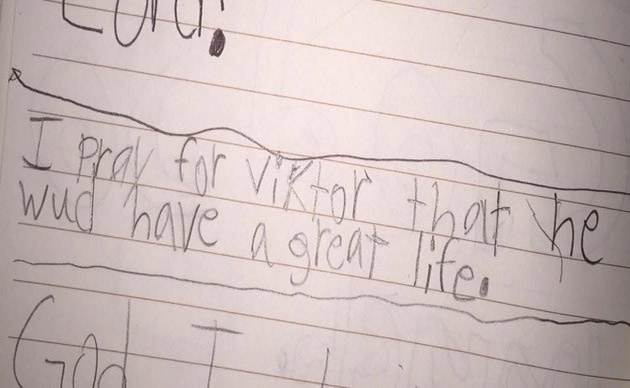 Lord!
I pray for viktor that he
wud have a great life.
God I